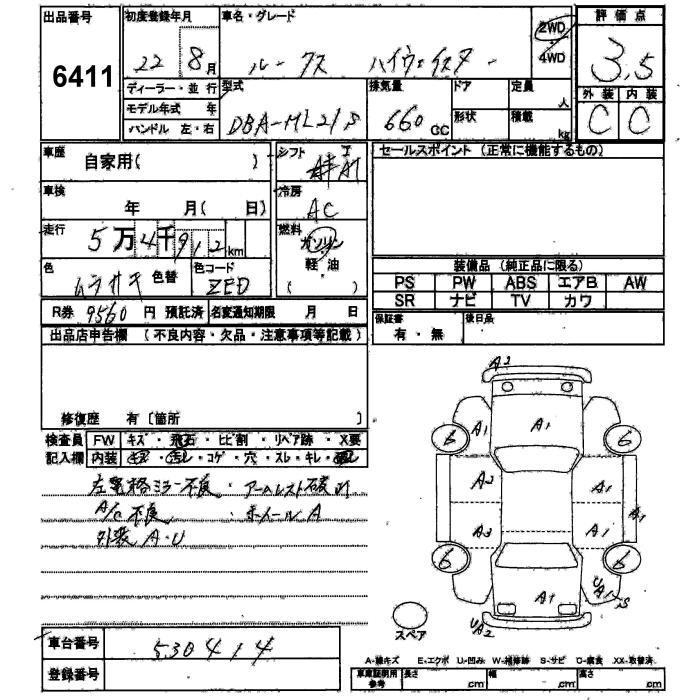 出品番号 初度登録年月 車名・グレード 2WD 評価点
6411 22 8月 ルークス ハイウェイスター 4WD 3.5
ディーラー・並行 型式 排気量 ドア 定員 人 外装 内装
モデル年式 年 DBA-ML21S 660cc 形状 積載 kg C C
ハンドル 左・右
車歴 自家用( ) シフト セールスポイント (正常に機能するもの)
車検 年 月( 日) 冷房 AC
走行 5万4千912km 燃料 ガソリン
軽油
( )
色 ムラサキ 色替 色コード ZED 装備品 (純正品に限る)
PS PW ABS エアB AW
SR ナビ TV カワ
R券 9560 円 預託済 名変通知期限 月 日 保証書 有・無 後日品
出品店申告欄 (不良内容・欠品・注意事項等記載)
修復歴 有 〔箇所 〕
検査員 FW キズ・飛石・ヒビ割・リペア跡・X要
記入欄 内装 ・コゲ・穴・スレ・キレ・
左電格ミラー不良・アームレスト破れ
A/C不良 ・ホイールA
外装A・U
A2
A1 A1
6 6
A2 A1
A3 A1 A1
6 6
A1 UA1 S
UA2
スペア
車台番号 530414
登録番号
A-線キズ E-エクボ U-凹み W-補修跡 S-サビ C-腐食 XX-取替済
車庫証明用参考 長さ cm 幅 cm 高さ cm